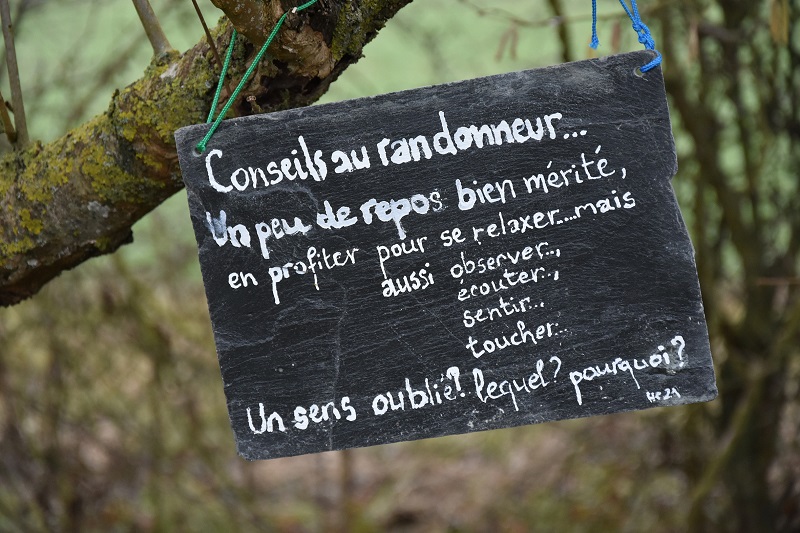 Conseils au randonneur...
Un peu de repos bien mérité,
en profiter pour se relaxer...mais
aussi observer..,
écouter..,
sentir...
toucher...
Un sens oublié? lequel? pourquoi?